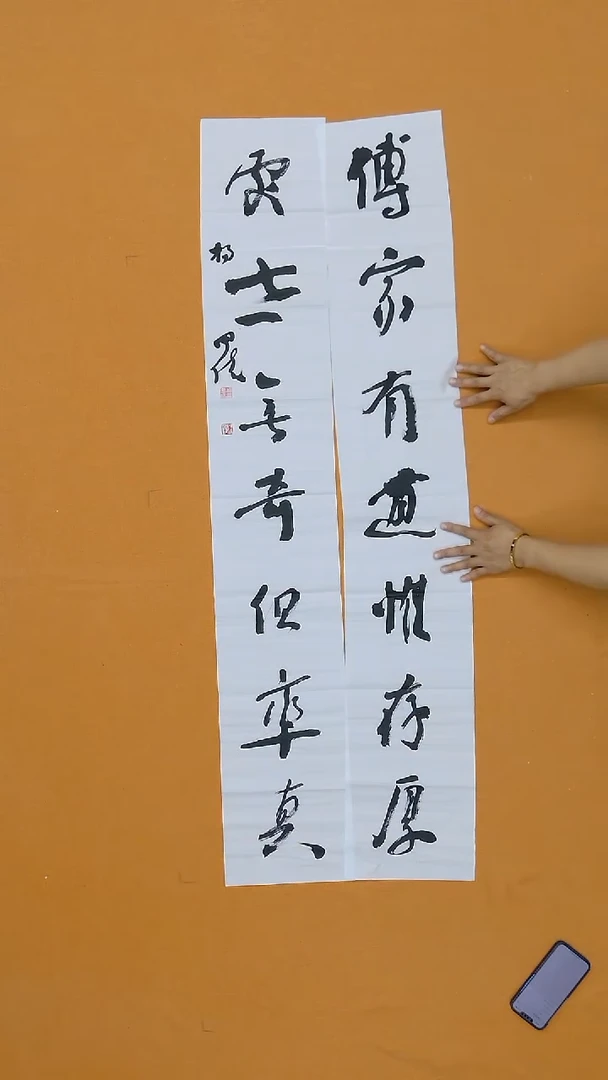 傳家有道惟存厚
處世無奇但率真